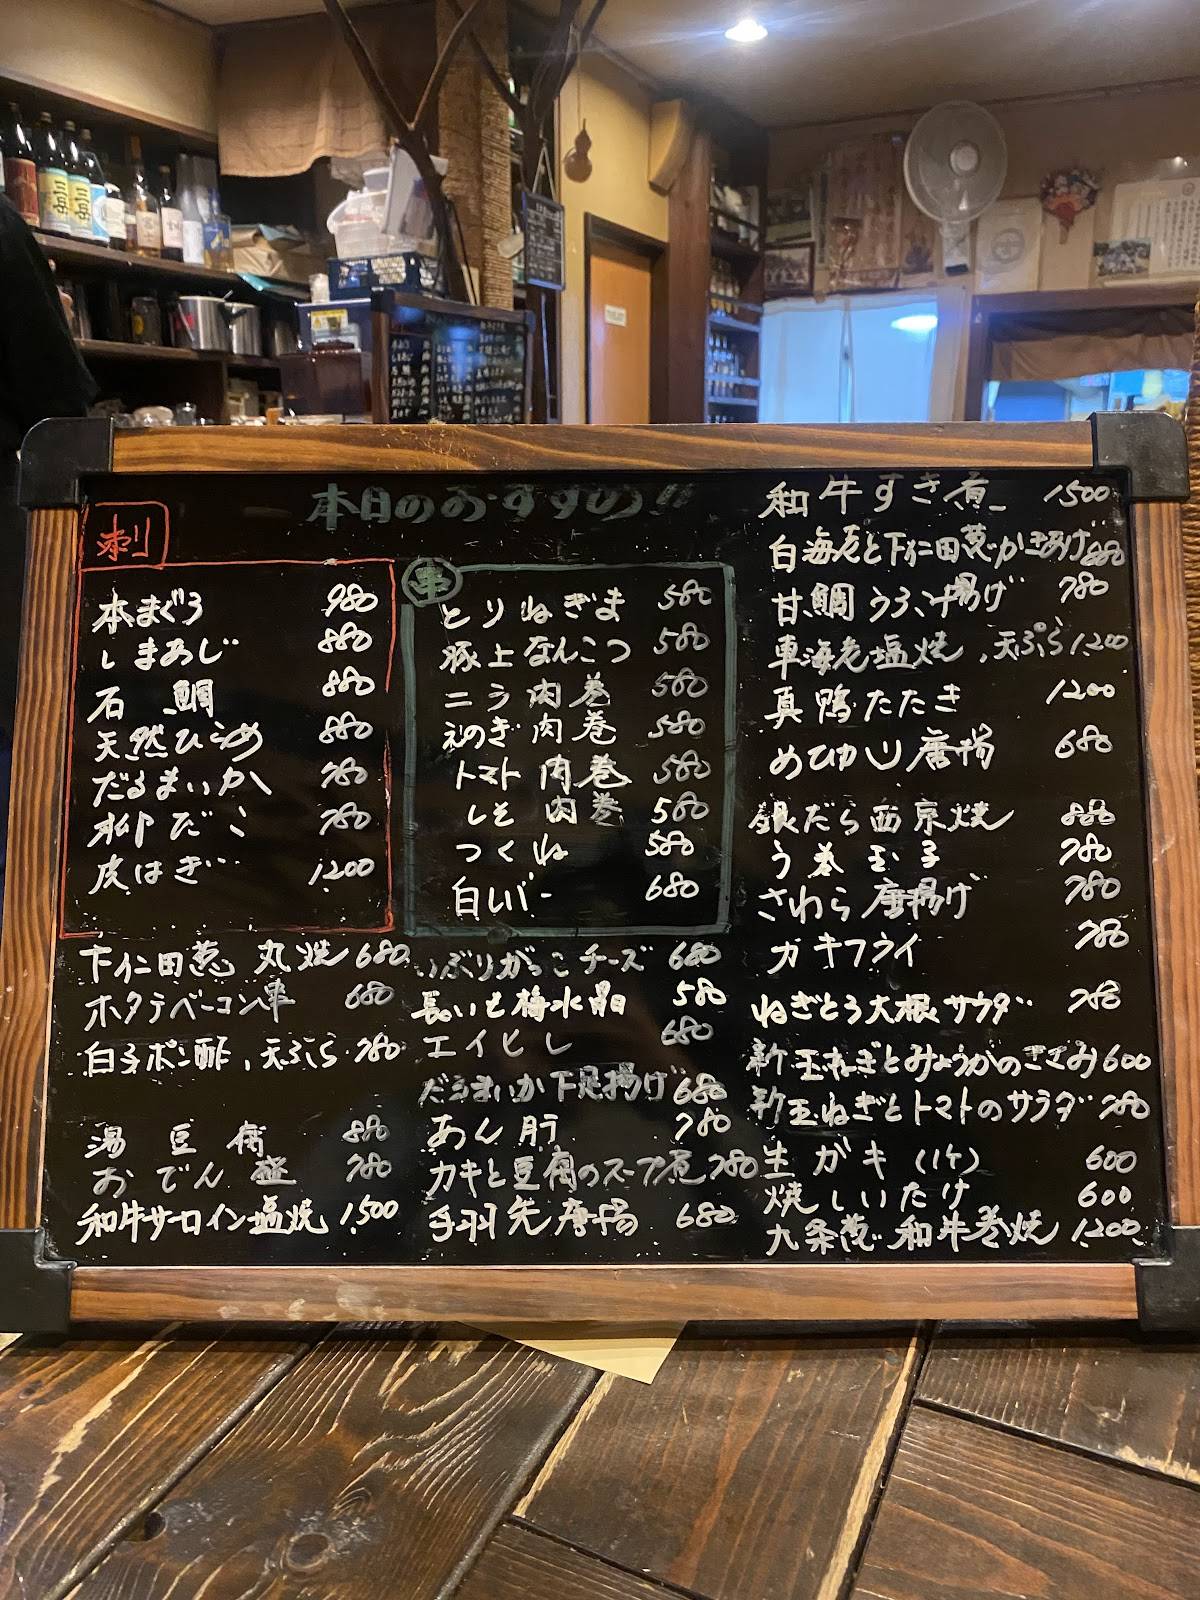 本日のおすすめ!!
刺
本まぐろ 980
しまあじ 880
石鯛 880
天然ひらめ 880
だるまいか 780
柳だこ 780
皮はぎ 1200
下仁田葱 丸焼 680
ホタテベーコン串 680
白子ポン酢、天ぷら 780
湯豆腐 880
おでん盛 780
和牛サーロイン塩焼 1,500
串
とりねぎま 580
豚上なんこつ 580
ニラ肉巻 580
えのき肉巻 580
トマト肉巻 580
しそ肉巻 580
つくね 580
白レバー 680
いぶりがっこチーズ 680
長いも梅水晶 580
エイヒレ 680
だるまいか下足揚げ 680
あん肝 780
カキと豆腐のスープ煮 780
手羽先唐揚 680
和牛すき煮 1500
白海老と下仁田葱かきあげ 880
甘鯛うろこ揚げ 780
車海老塩焼、天ぷら 1,200
真鴨たたき 1200
めひかり唐揚 680
銀だら西京焼 880
う巻玉子 780
さわら唐揚げ 780
カキフライ 780
ねぎとろ大根サラダ 780
新玉ねぎとみょうがのきざみ 600
新玉ねぎとトマトのサラダ 780
生ガキ (1ケ) 600
焼しいたけ 600
九条葱和牛巻焼 1,200